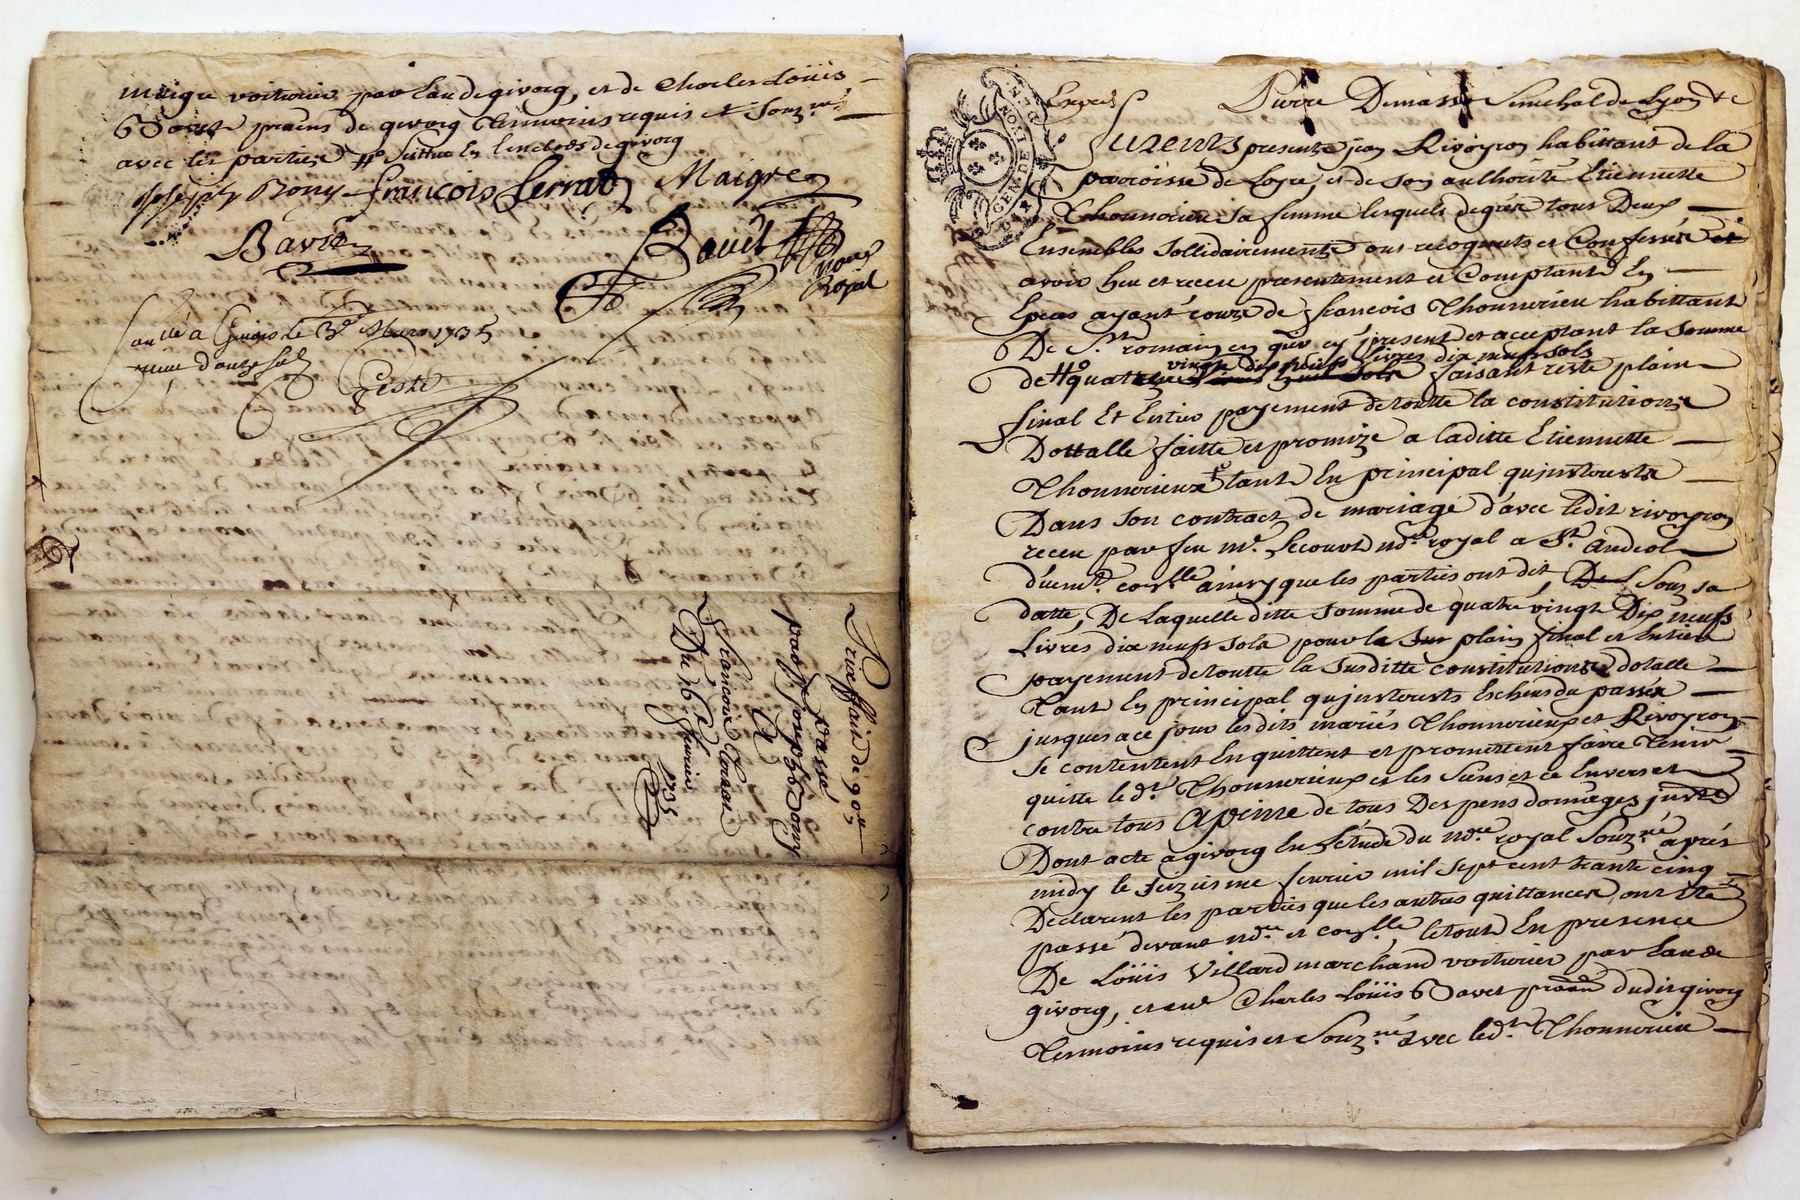 maigre voiturier par eau de givorg, et de Charles Loüis
Bavet prãns de givorg tesmoins requis et Souz.nés
avec les parties ## scittué en l'enclos de givorg
Joseph Bony francois ferrat Maigre
Bavet
Bouët
no.re
Royal
Con.llé a Givors le 3e Mars 1735
reçeu douze sols
Geste
Prixffait de 90 ₶
passé
A
par Joseph Bony
francois ferrat
Du 16e fevrier
1735
GEN. DE LYON
Expedié
Pierre Demasso Senechal de Lyon &c
furents presents jean Rivoyron habittant de la
parroisse de Loyre, et de son authorité Etiennette
Thonnerieux sa femme lesquels de gré tous Deux
Ensembles sollidairements ont recognuts et Confessés et
avoir heu et receu presentement et Comptant En
Especes ayant cours de francois Thonnerieu habittant
De St romain en gier cy present et acceptant la somme
vingts dix neufs livres dix neufs sols
de ## quatre faisant reste plain
final Et Entier payement de toutte la constitutions
Dottalle faitte et promize a laditte Etiennette
Thonnerieux tant En principal qu'jntourts
Dans son contract de mariage d'avec ledit rivoyron
receu par feu me. Lecourt no.re royal a St. andeol
düement con.llé ainsy que les parties ont dit, De Souz sa
datte, De laquelle ditte somme de quatre vingt Dix neufs
Livres dix neufs sols pour la sur plain final et Entier
payement de toutte la susditte constitutions dotalle
tant En principal qu'jntourts Escheus du passés
jusques a ce jour lesdits mariés Thonnerieux et Rivoyron
se contentent En quittent et promettent faire tenir
quitte led.t Thonnerieux et les siens et ce Envers et
contre tous a peine de tous Des pens domages justs
Dont acte a givorg En l'étude du no.re royal Souz.né apres
midy le seizieme fevrier mil sept cent trante cinq
Declarent les parties que les autres quittances ont été
passé devant no.re et con.llé le tout En presence
De Loüis Villard marchand voiturier par eau de
givorg, et sr Charles Loüis Bavet prãan dudit givorg
Tesmoins requis et Souz.nés avec led.t Thonnerieu